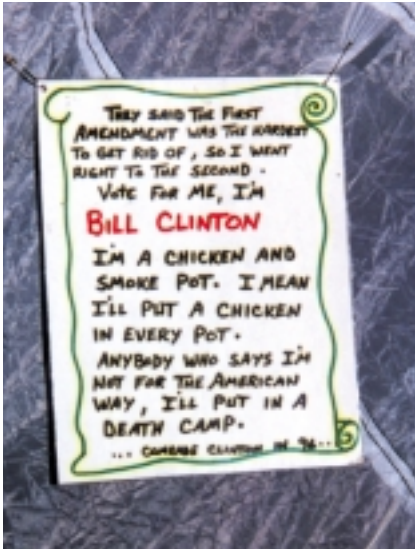 THEY SAID THE FIRST
AMENDMENT WAS THE HARDEST
TO GET RID OF, SO I WENT
RIGHT TO THE SECOND.
VOTE FOR ME, I'M
BILL CLINTON
I'M A CHICKEN AND
SMOKE POT. I MEAN
I'LL PUT A CHICKEN
IN EVERY POT.
ANYBODY WHO SAYS I'M
NOT FOR THE AMERICAN
WAY, I'LL PUT IN A
DEATH CAMP.
... COMRADE CLINTON IN 96...